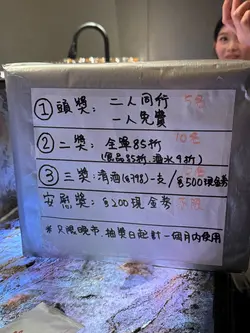 ①頭獎: 二人同行 5名
一人免費
②二獎: 全單85折 10名
(食品85折, 酒水9折)
③三獎: 清酒($798)一支/$500現金券
安慰獎: $200現金券 不限
*只限晚市, 抽獎日起計一個月內使用